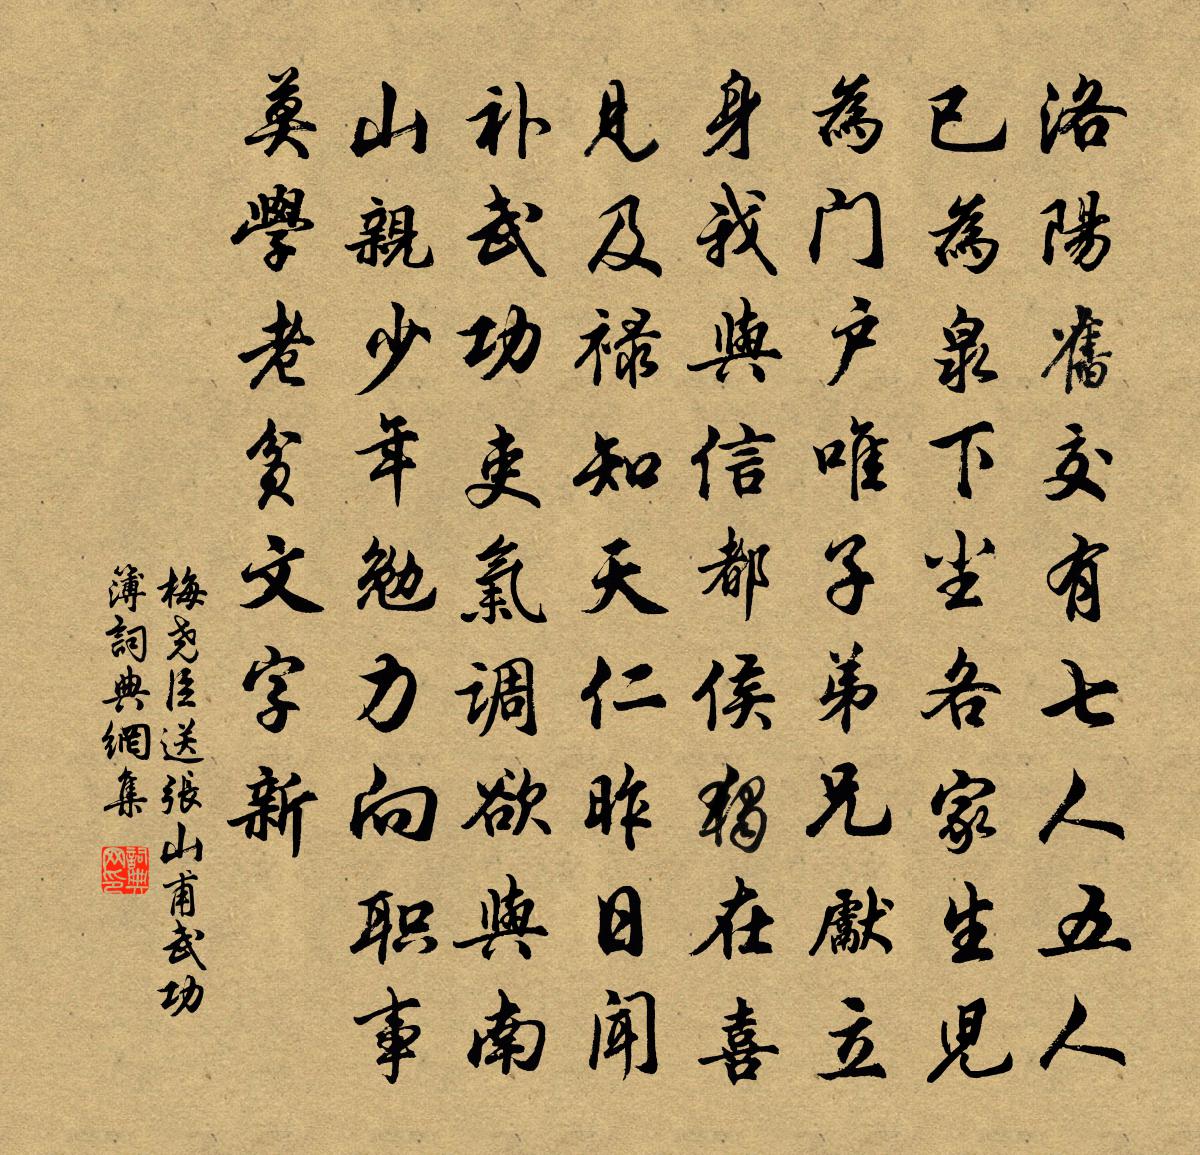 洛陽舊交有七人五人
已為泉下尘各家生兒
為门户唯子弟兄獻立
身我與信都侯獨在喜
見及禄知天仁昨日闻
补武功吏氣调欲與南
山親少年勉力向职事
莫學老貧文字新
梅尧臣送張山甫武功
簿詞典網集
詞典网印